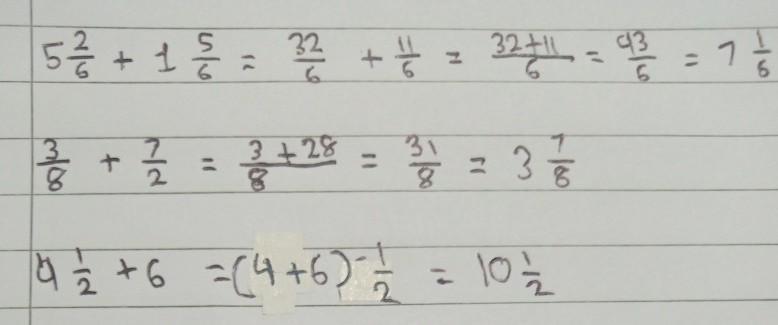 5 2/6 + 1 5/6 = 32/6 + 11/6 = 32+11/6 = 43/6 = 7 1/6
3/8 + 7/2 = 3+28/8 = 31/8 = 3 7/8
4 1/2 + 6 = (4+6) 1/2 = 10 1/2